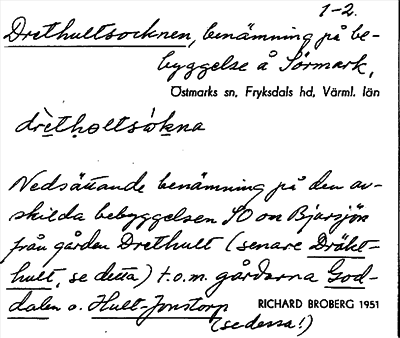 1-2.
Drethultsocknen, benämning på be-
byggelse å Sörmark,
Östmarks sn, Fryksdals hd, Värml. län
drèthəltsòkna
Nedsättande benämning på den av-
skilda bebyggelsen SO om Bjursjön
från gården Drethult (senare Dräkt-
hult, se detta) t.o.m. gårdarna God-
dalen o. Hult-Jonstorp
RICHARD BROBERG 1951
(se dessa!)